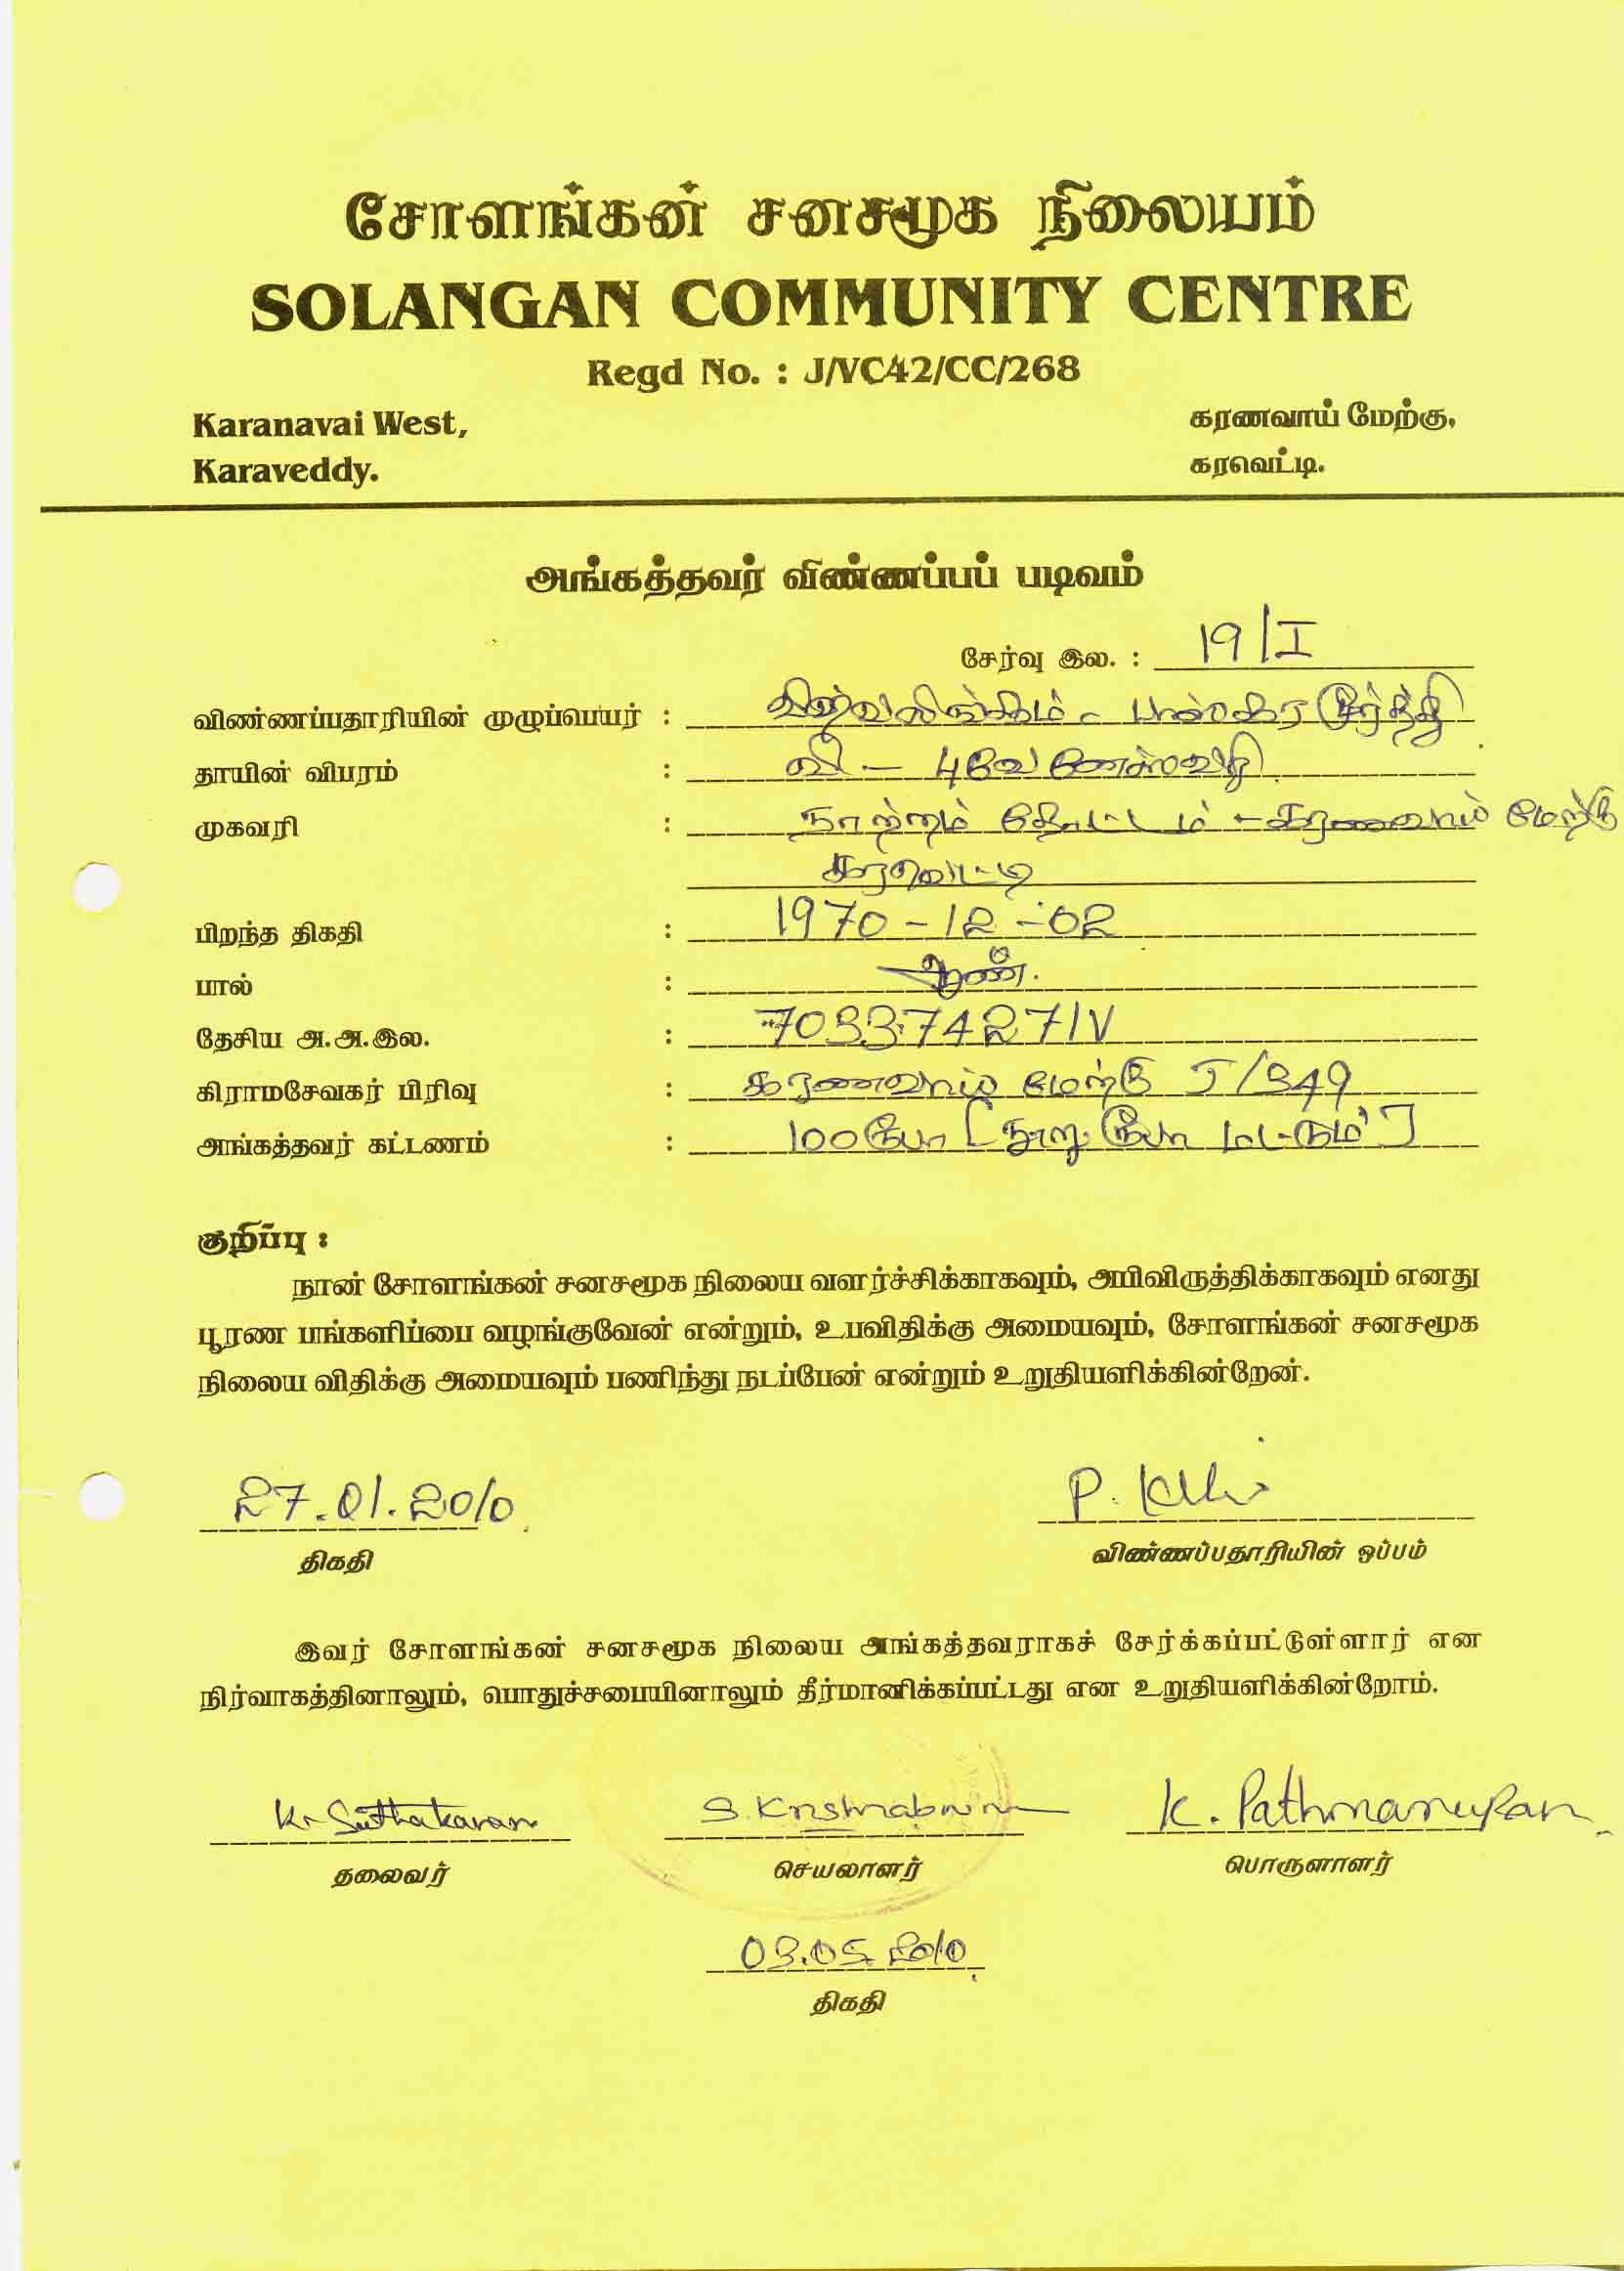 சோளங்கன் சனசமூக நிலையம்
SOLANGAN COMMUNITY CENTRE
Regd No. : J/VC42/CC/268
Karanavai West, கரணவாய் மேற்கு,
Karaveddy. கரவெட்டி.
அங்கத்தவர் விண்ணப்பப் படிவம்
சேர்வு இல. : 19/I
விண்ணப்பதாரியின் முழுப்பெயர் : விஜ்வலிங்கம் - பாஸ்கரமூர்த்தி
தாயின் விபரம் : வி - புவேணேஸ்வரி
முகவரி : நாற்றம் தோட்டம் - கரணவாய் மேற்கு
கரவெட்டி
பிறந்த திகதி : 1970-12-02
பால் : ஆண்.
தேசிய அ.அ.இல. : 703374271V
கிராமசேவகர் பிரிவு : கரணவாய் மேற்கு J/349
அங்கத்தவர் கட்டணம் : 100ரூபா [நூறு ரூபா மட்டும்]
குறிப்பு :
நான் சோளங்கன் சனசமூக நிலைய வளர்ச்சிக்காகவும், அபிவிருத்திக்காகவும் எனது
பூரண பங்களிப்பை வழங்குவேன் என்றும், உபவிதிக்கு அமையவும், சோளங்கன் சனசமூக
நிலைய விதிக்கு அமையவும் பணிந்து நடப்பேன் என்றும் உறுதியளிக்கின்றேன்.
27.01.2010 P.
திகதி விண்ணப்பதாரியின் ஒப்பம்
இவர் சோளங்கன் சனசமூக நிலைய அங்கத்தவராகச் சேர்க்கப்பட்டுள்ளார் என
நிர்வாகத்தினாலும், பொதுச்சபையினாலும் தீர்மானிக்கப்பட்டது என உறுதியளிக்கின்றோம்.
K. Suthakaran S. K. Pathmanupan
தலைவர் செயலாளர் பொருளாளர்
03.05.2010
திகதி